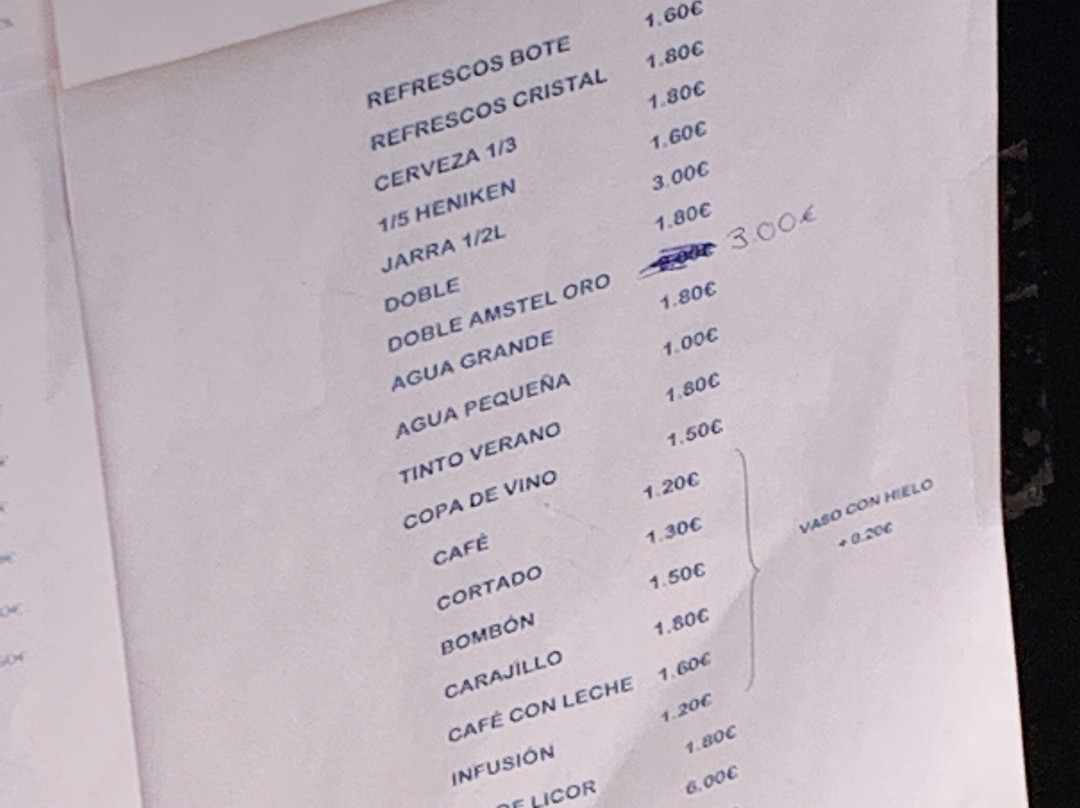 REFRESCOS BOTE 1.60€
REFRESCOS CRISTAL 1.80€
CERVEZA 1/3 1.80€
1/5 HENIKEN 1.60€
JARRA 1/2L 3.00€
DOBLE 1.80€
DOBLE AMSTEL ORO 3.00€
AGUA GRANDE 1.80€
AGUA PEQUEÑA 1.00€
TINTO VERANO 1.80€
COPA DE VINO 1.50€
CAFÉ 1.20€
CORTADO 1.30€
BOMBÓN 1.50€
CARAJILLO 1.80€
CAFÉ CON LECHE 1.60€
VASO CON HIELO
+ 0.20€
INFUSIÓN 1.20€
DE LICOR 1.80€
6.00€